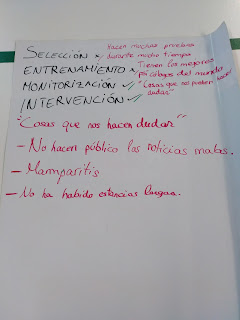 SELECCIÓN × Hacen muchas pruebas durante mucho tiempo
ENTRENAMIENTO × Tienen los mejores psicólogos del mundo
MONITORIZACIÓN ✓ "Cosas que nos pueden hacer dudas"
INTERVENCIÓN ✓
"Cosas que nos hacen dudar"
- No hacen público las noticias malas.
- Mamparitis
- No ha habido estancias largas.